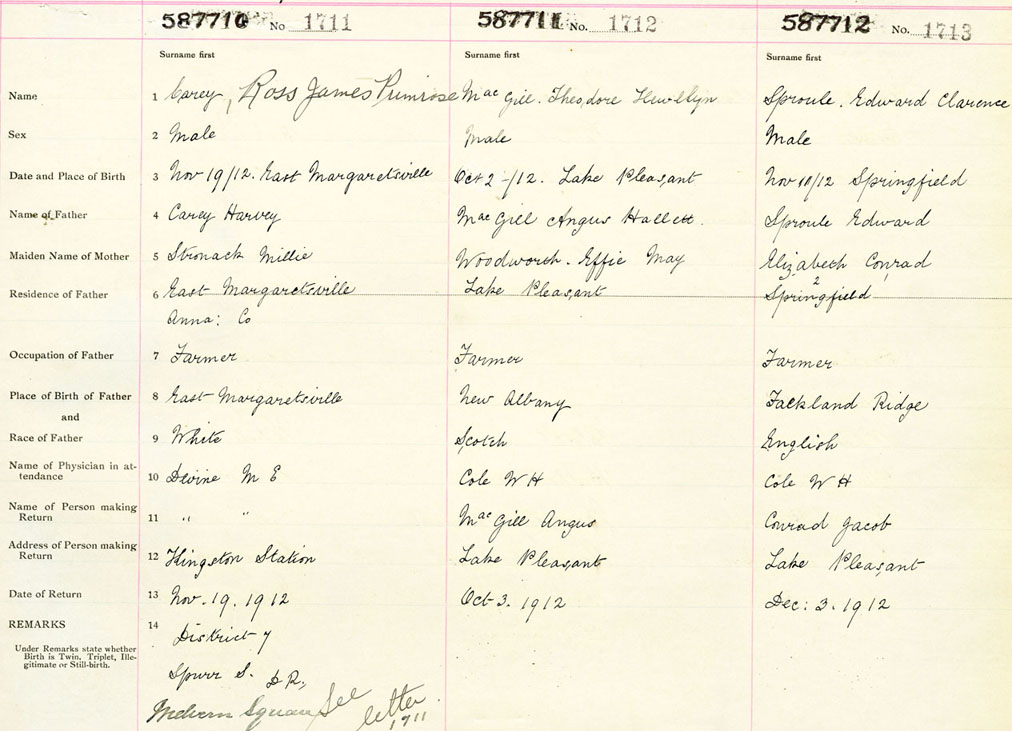 587710 No 1711 587711 No. 1712 587712 No. 1713
Surname first Surname first Surname first
Name 1 Carey, Ross James Primrose Mac Gill. Theodore Sproule. Edward Clarence
Sex 2 Male Male Male
Date and Place of Birth 3 Nov 19/12. East Margaretsville Oct 2-/12. Lake Pleasant Nov 10/12 Springfield
Name of Father 4 Carey Harvey Mac Gill Angus Hallett. Sproule Edward
Maiden Name of Mother 5 Stronack Millie Woodworth. Effie May Elizabeth Conrad
Residence of Father 6 East Margaretsville Lake Pleasant Springfield
2
Anna: Co
Occupation of Father 7 Farmer Farmer Farmer
Place of Birth of Father 8 East Margaretsville New Albany Falkland Ridge
and
Race of Father 9 White Scotch English
Name of Physician in at-
tendance 10 Devine M E Cole W H Cole W H
Name of Person making
Return 11 " " Mac Gill Angus Conrad Jacob
Address of Person making
Return 12 Kingston Station Lake Pleasant Lake Pleasant
Date of Return 13 Nov. 19. 1912 Oct 3. 1912 Dec: 3. 1912
REMARKS 14
District 7
Under Remarks state whether
Birth is Twin, Triplet, Ille-
gitimate or Still-birth.
Spurr S. D R,
Melvern Square See
letter
1711